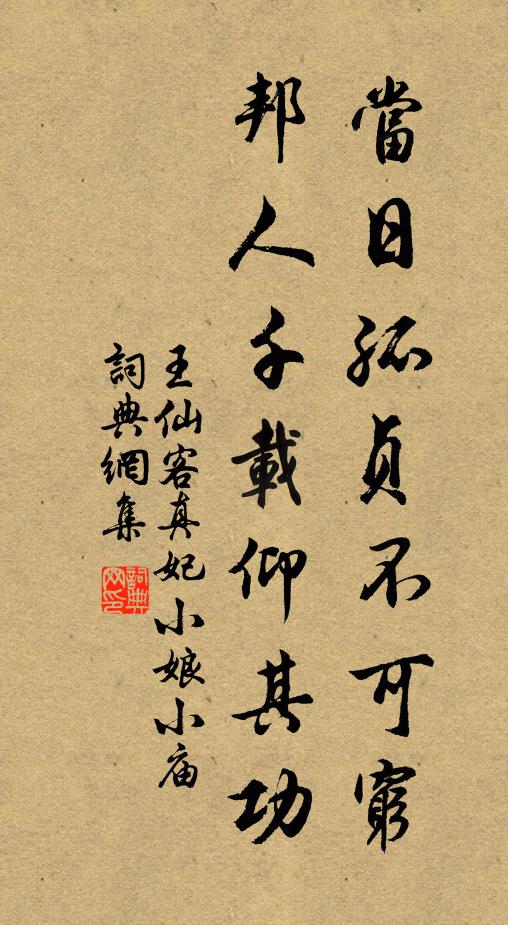 當日孤貞不可窮
邦人千載仰其功
王仙客真妃小娘小庙
詞典網集
詞典网印